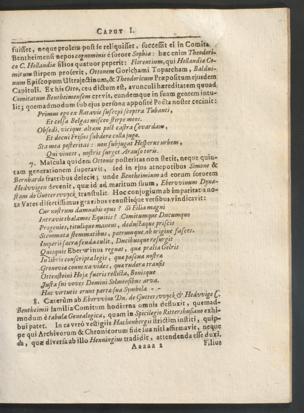 CAPUT I.
fuisset, neque prolem post se reliquisset, successit ei in Comita-
Bentheimensi nepos cognominis è sorore Sophia: hæc enim Theodori-
co C. Hollandiæ filios quatuor peperit: Florentium, qui Hollandiæ Co-
mitum stirpem protexit, Ottonem Gorichami Toparcham, Baldui-
num Episcopum Ultrajectinum, & Theodoricum Præpositum ejusdem
Capituli. Ex his Otto, ceu dictum est, avunculi hæreditatem quoad
Comitatum Bentheimensem crevit, eundemque in suam gentem intu-
lit; quemadmodum sub ejus persona apposité Poëta noster cecinit:
Primus ego ex Batavis suscepi sceptra Tubanti,
Et celsa Belgas misceo stirpe meos.
Obsedi, vicique altam post castra Covardam,
Et docui Frisios subdere colla jugo.
Sta mea posteritas: non subjugat Hesterus urbem,
Qui vincet, nostris surget Arausa toris.
7. Mascula quidem Ottonis posteritas non stetit, neque quin-
tam generationem superavit, sed in ejus atnepotibus Simone &
Bernhardo fratribus delecit; unde Bentheimium ad eorum sororem
Hedewigen devenit, quæ id ad maritum suum, Eberwinum Dyna-
stem de Gutterswyck, transtulit. Hoc conjugium ab imparitate no-
ta Vates disertissimus gravibus venustisque versibus vindicavit:
Cur nostrum damnabis opus? Si Filia magni
Intravit thalamos Equitis? Comitumque Ducumque
Progenies, titulique manent, deductaque priscis
Stemmata flemmatibus, patrumque ab origine fasces.
Imperii sacra feuda tulit, Ducibusque resurgit
Quisquis Eberwinus regnat, qua præliæ Gelris
Nobilis conscripta legis, qua pajona nostra
Gronovia commeæ vides, qua rudera transit
Ottensteini Hoja fueris relicta, Bonisque
Justa sui voves Domini Solmensibus arva.
Hac vertutis erunt parta sua Symbola - -
8. Cæterùm ab Eberwino Dn. de Gutterswyck & Hedewige C.
Benthemii familia Comitum hodierna omnis defluxit, quemad-
modum è tabula Genealogica, quam in Spicilegio Rittershusiano exhi-
bui patet. In ea verò vestigiis Hachenbergii strictim institi, quip-
pe qui Archivorum & Chronicorum fide sua niti asseravit, neque
quæ diversa ab illo Henninges tradidit, attendenda esse duxi.
Aaaaa 2
Filius